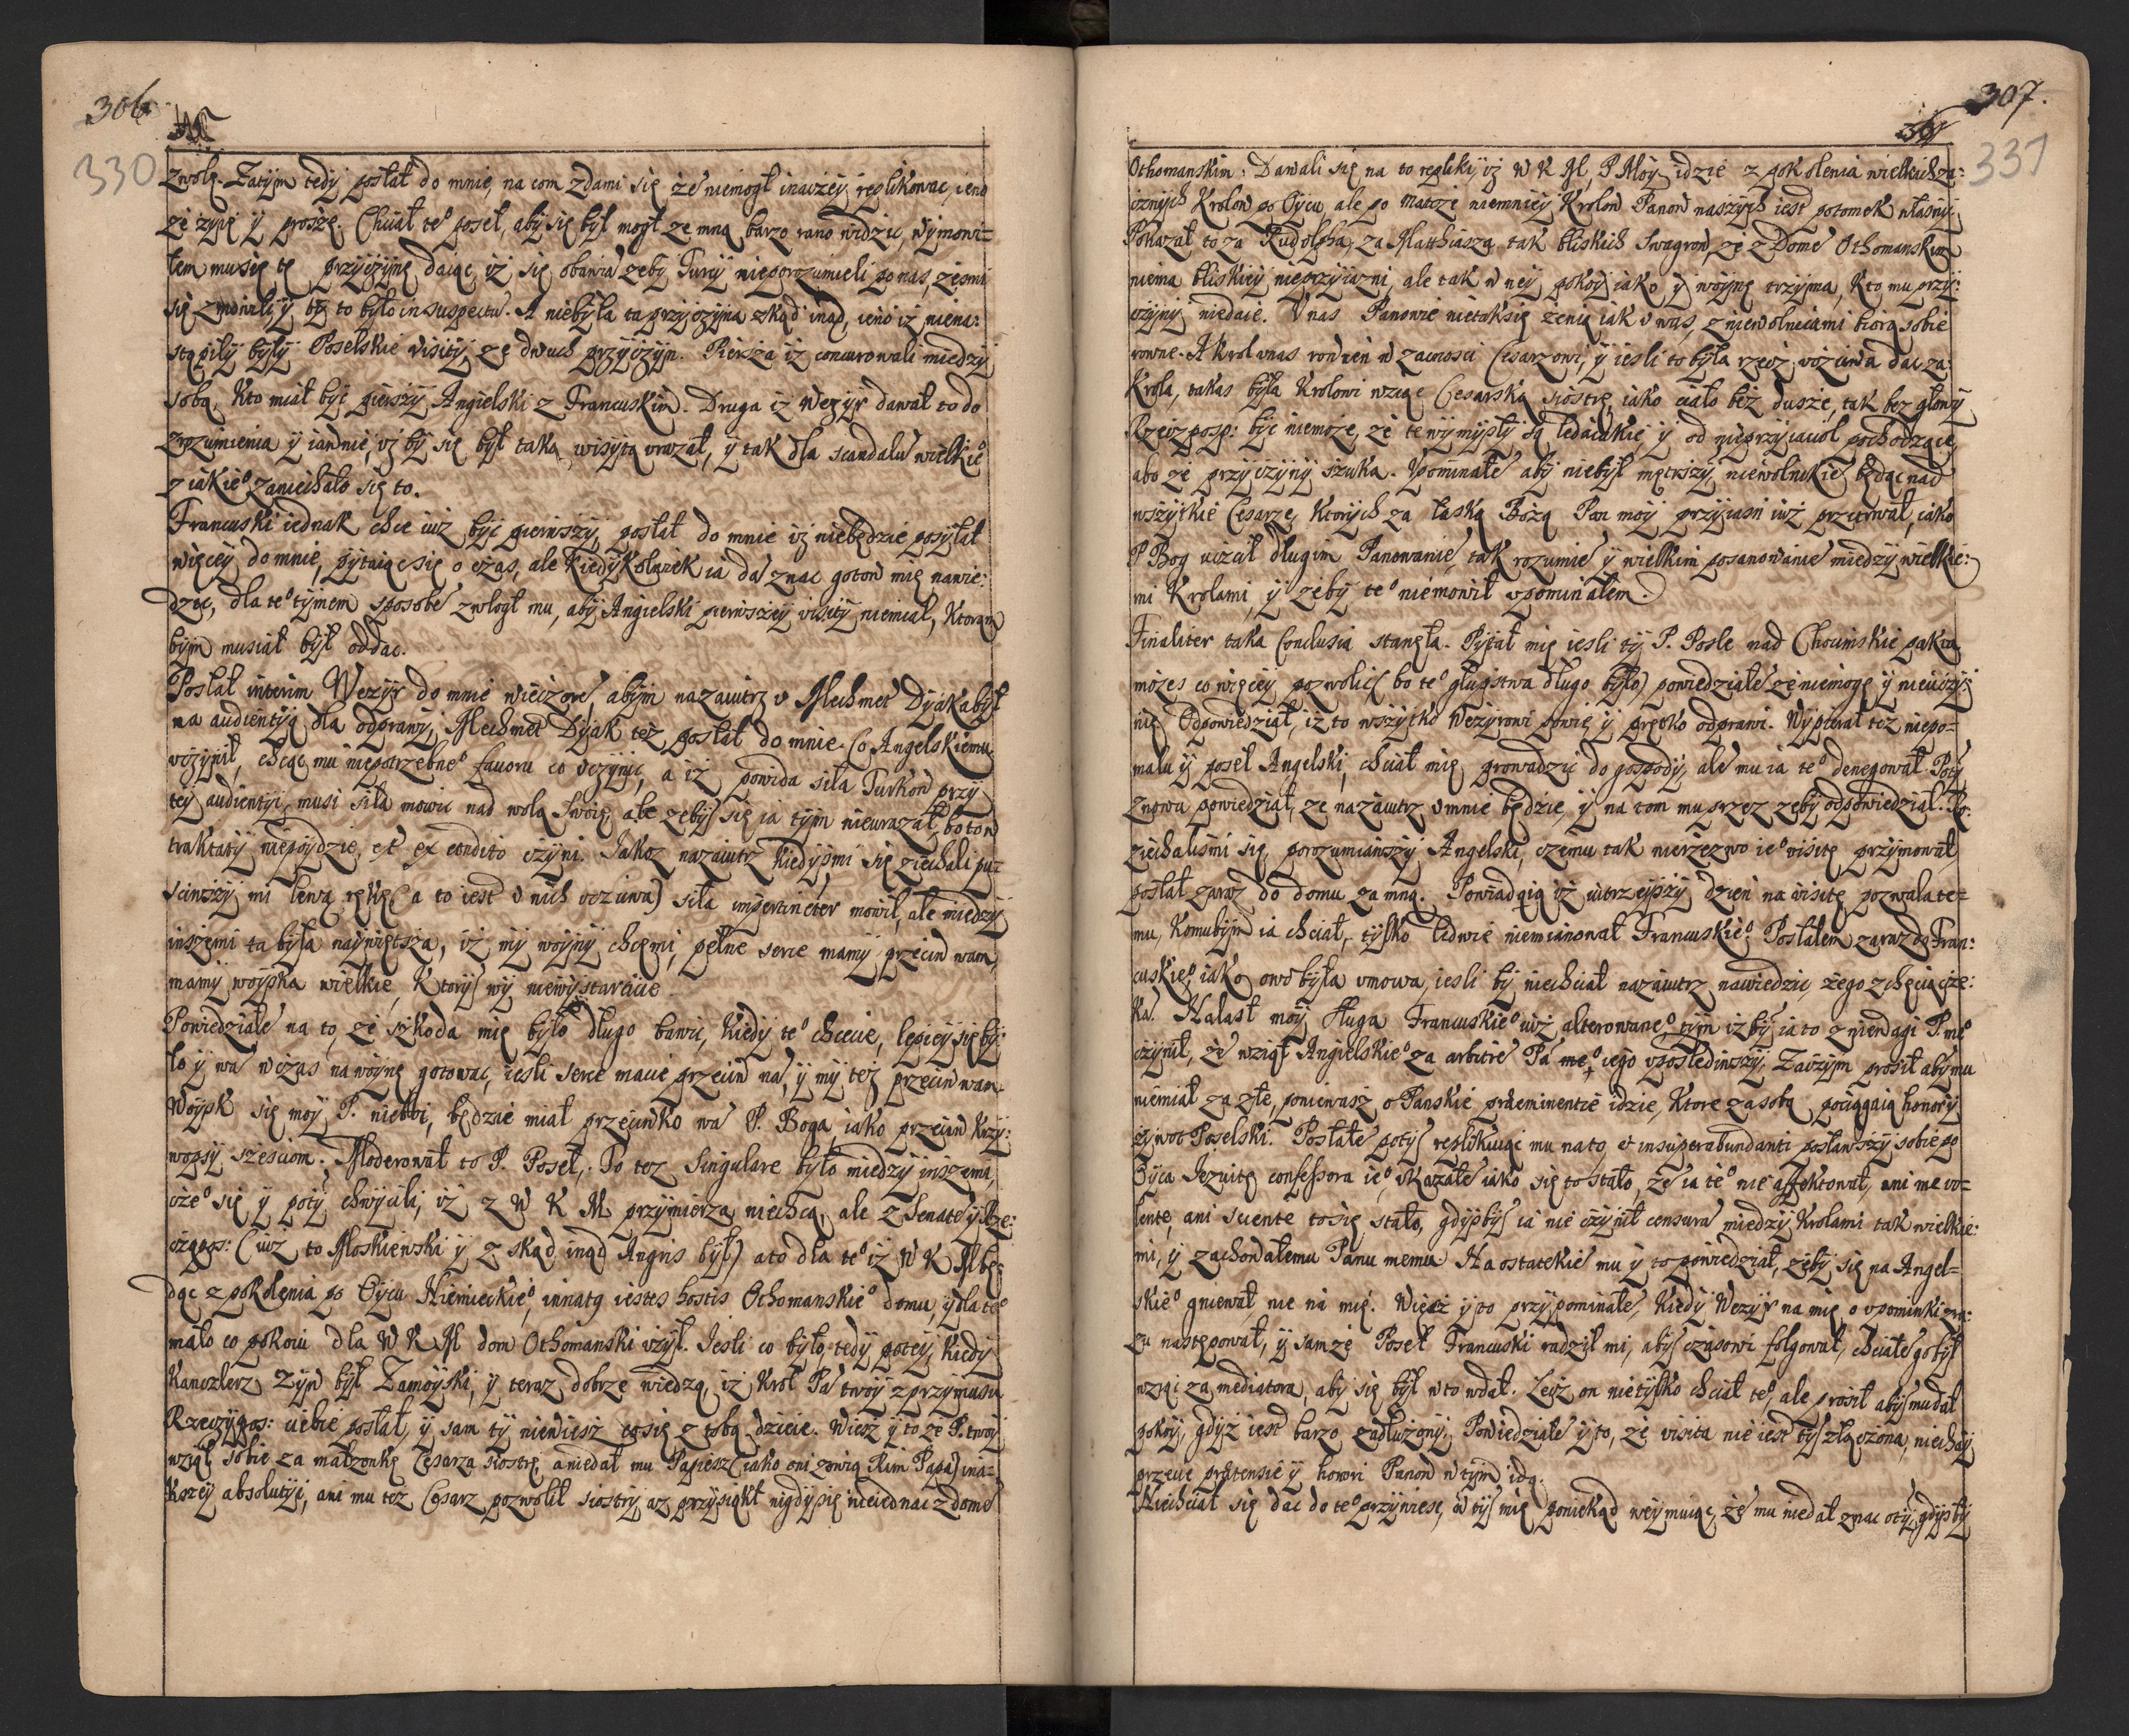 306
330
zwolę. Zatym tedy posłał do mnie, na com zdami się że niemogł inaczey replikowac, ieno
że zyię y proszę. Chciał te° poseł, aby się był mogł ze mną barzo rano widzic, wymowi=
łem musię tę przyczynę daiąc, iż się obawia zeby Turcy nieporozumieli po nas, żesmi
się zmowili, y by to było in suspectu. A niebyła ta przyczyna zkąd inąd, ieno iz niena:
stąpiły były Poselskie visity, ze dwuch przyczyn. Piersza iż concurowali miedzy
sobą, Kto miał być pierszy, Angielski z Francuskim. Druga iż Wezyr dawał to do
zrozumienia y iawnie, iż by się był taką wisytą vrazał, y tak dla scandalu wielkie°
z iakie° zaniechało się to.
Francuski iednak chce iuż być pierwszy, posłał do mnie iż niebędzie posyłał
więcey do mnie, pytaiąc się o czas, ale kiedykolwiek ia da znac gotow mię nawie:
dzic, dla te° tymem sposobe zwłoył mu, aby Angielski pierwszey visity niemiał, Ktorą
bym musiał był oddac.
Posłał interim Wezyr do mnie wieczore, abym nazaiutrz v Mechmet Dyaka był
na audientyą dla odprawy, Mechmet Dyak też posłał do mnie. Co Angelskiemu
vczynił, chcąc mu niepotrzebne° fauoru co vczynic, a iż powida siła Turkow przy
tey audientyi, musi siła mowic nad wolą swoię, ale zebyś się ia tym nieurazał, bo to w
traktaty niepoydzie, et ex condito czyni. Jakoz nazaiutrz kiedyśmi się ziechali pu=
sciwszy mi lewą rękę (a to iest v nich vczciwa) siła impertineter mowił, ale miedzy
inszemi ta była naywiętsza, iż my woyny chcemi, pełne serce mamy przeciw wam,
mamy woyska wielkie, Ktorys wy niewystarcicie.
Powiedziałe na to, że szkoda mię było długo bawic, Kiedy te° chcecie, lepiey się by:
ło y wa wczas na woynę gotowac, iesli serce macie przeciw na, y my też przeciw wam.
Woysk się moy P. nieboi, będzie miał przeciwko wa P. Boga, iako przeciw krzy:
woprzysięscom. Moderował to P. Poseł. To tez Singulare było miedzy inszemi,
cze° się y poty chwycili, iż z W K M przymierza niechcą, ale z Senate y Rze:
czgpos: (iuż to Moskiewski y z skąd inąd Angris był) a to dla te° iż W K M bę:
dąc z pokolenia po Oycu Niemieckie°, innatq iestes hostis Othomanskie° domu, y dla te°
mało co pokoiu dla W K M dom Othomanski vżył. Iesli co było, tedy potey, kiedy
Kanczlerz zyw był Zamoyski, y teraz dobrze wiedzą, iż Krol Pa twoy z przymusu
Rzeczypos: ciebie posłał, y sam ty niewiesz co się z tobą dzieie. Wiesz y to że P. twoy
wziął sobie za małzonkę Cesarza siostrę, a niedał mu Papiesz (iako oni zowią Rim Papa) ina=
kszey absolutyi, ani mu tez Cesarz pozwolił siostry, az przysiągł nigdy się nieiednac z dome
307.
331
Othomanskim. Dawali się na to repliki, iż W K M, P. Moy idzie z pokolenia wielkich za:
cznych Krolow po Oycu, ale po matce niemniey Krolow Panow naszych iest potomek własny.
Pokazał to za Rudolpha, za Matthiasza, tak bliskich swagrow, że z Dome Othomanskim
niema bliskiey nieprzyiazni, ale tak w ney pokoy iako y woynę trzyma, Kto mu przy:
czyny niedaie. V nas Panowie nietak się zenią iak v was, z niewolnicami biorą sobie
rowne. A Krol v nas rowien w zacnosci Cesarzowi, y iesli to była rzecz vczciwa dac za
Krola, takas była Krolowi wziąc Cesarską siostrę, iako ciało bez dusze, tak bez głowy
Rzeczposp: być niemoże, że te wymysły są ledaiakie y od nieprzyiacioł pochodzące,
abo że przyczyny szuka. Vpominałe aby niebył mętrszy, niewolnikie będąc nad
wszytkie Cesarze, Ktorych za łaską Bożą Pan moy przyiasn iuż przetrwał, iako
P Bog vczcił długim Panowanie, tak rozumie y wielkim posanowanie miedzy wielkie:
mi Krolami, y żeby te° niemowił vpominałem.
Finaliter taka Conclusia stanęła. Pytał mię iesli ty P. Posle nad Chocimskie pakta
możes co więcey pozwolic (bo te° głupstwa długo było) powiedziałe że niemogę y nieuczy:
nię. Odpowiedział, iż to wszytko Wezyrowi powie, y prętko odprawi. Wypierał tez niepo=
mału y poseł Angelski, chciał mię prowadzic do gospody, ale mu ia te° denegował. Poty
znowu powiedział, ze nazaiutrz v mnie będzie, y na tom mu przez zęby odpowiedział. Ro:
ziechalismi się, porozumiawszy Angelski, czemu tak nierzezwo ie° visitę przymował
posłał zaraz do domu za mną. Powiadaią iż iutrzeyszy dzien na visitę pozwala te=
mu, Komubym ia chciał, tylko ledwie niemianował Francuskie°. Posłałem zaraz do Fran:
cuskie°, iako owo była vmowa, iesli by niechciał nazaiutrz nawiedzic, żego z chęcią cze:
ka. Nalasł moy sługa Francuskie° iuż alterowane° tym iż by ia to z niewagi P. me°
czynił, że wziął Angielskie° za arbitre Pa me° iego vpośledziwszy, Zaczym prosił aby mu
niemiał za złe, poniewasz o Panskie praeminentie idzie, Ktore za sobą pociągaią honory
żywot Poselski. Posłałe poty replikuiąc mu na to, et insuperabundanti posławszy sobie po
Oyca Iezuitę confessora ie°, vkazałe iako się to stało, że ia te° nie affektował, ani me vo=
lente, ani sciente to się stało, gdyżbys ia nie czynił censura miedzy Krolami tak wielkie:
mi, y zachowałemu Panu memu. Na ostatekie mu y to powiedział, żeby się na Angel=
skie° gniewał, nie na mię. Więcz y to przypominałe, Kiedy Wezyr na mię o vpominki zra:
zu następował, y sam że Poseł Francuski radził mi, abys czasowi folgował, chciałe go był
wziąć za mediatora, aby się był w to wdał. Lecz on nietylko chciał te°, ale prosił abys mu dał
pokoy, gdyż iest barzo zadłużony. Powiedziałe y to, że visita nie iest tys złączona, niechay
przecie praetensie y honori Panow w tym idą.
Niechciał się dac do te° przywiesc, w tys mię poniekąd weymuiąc, że mu niedał znac o ty, gdyżby